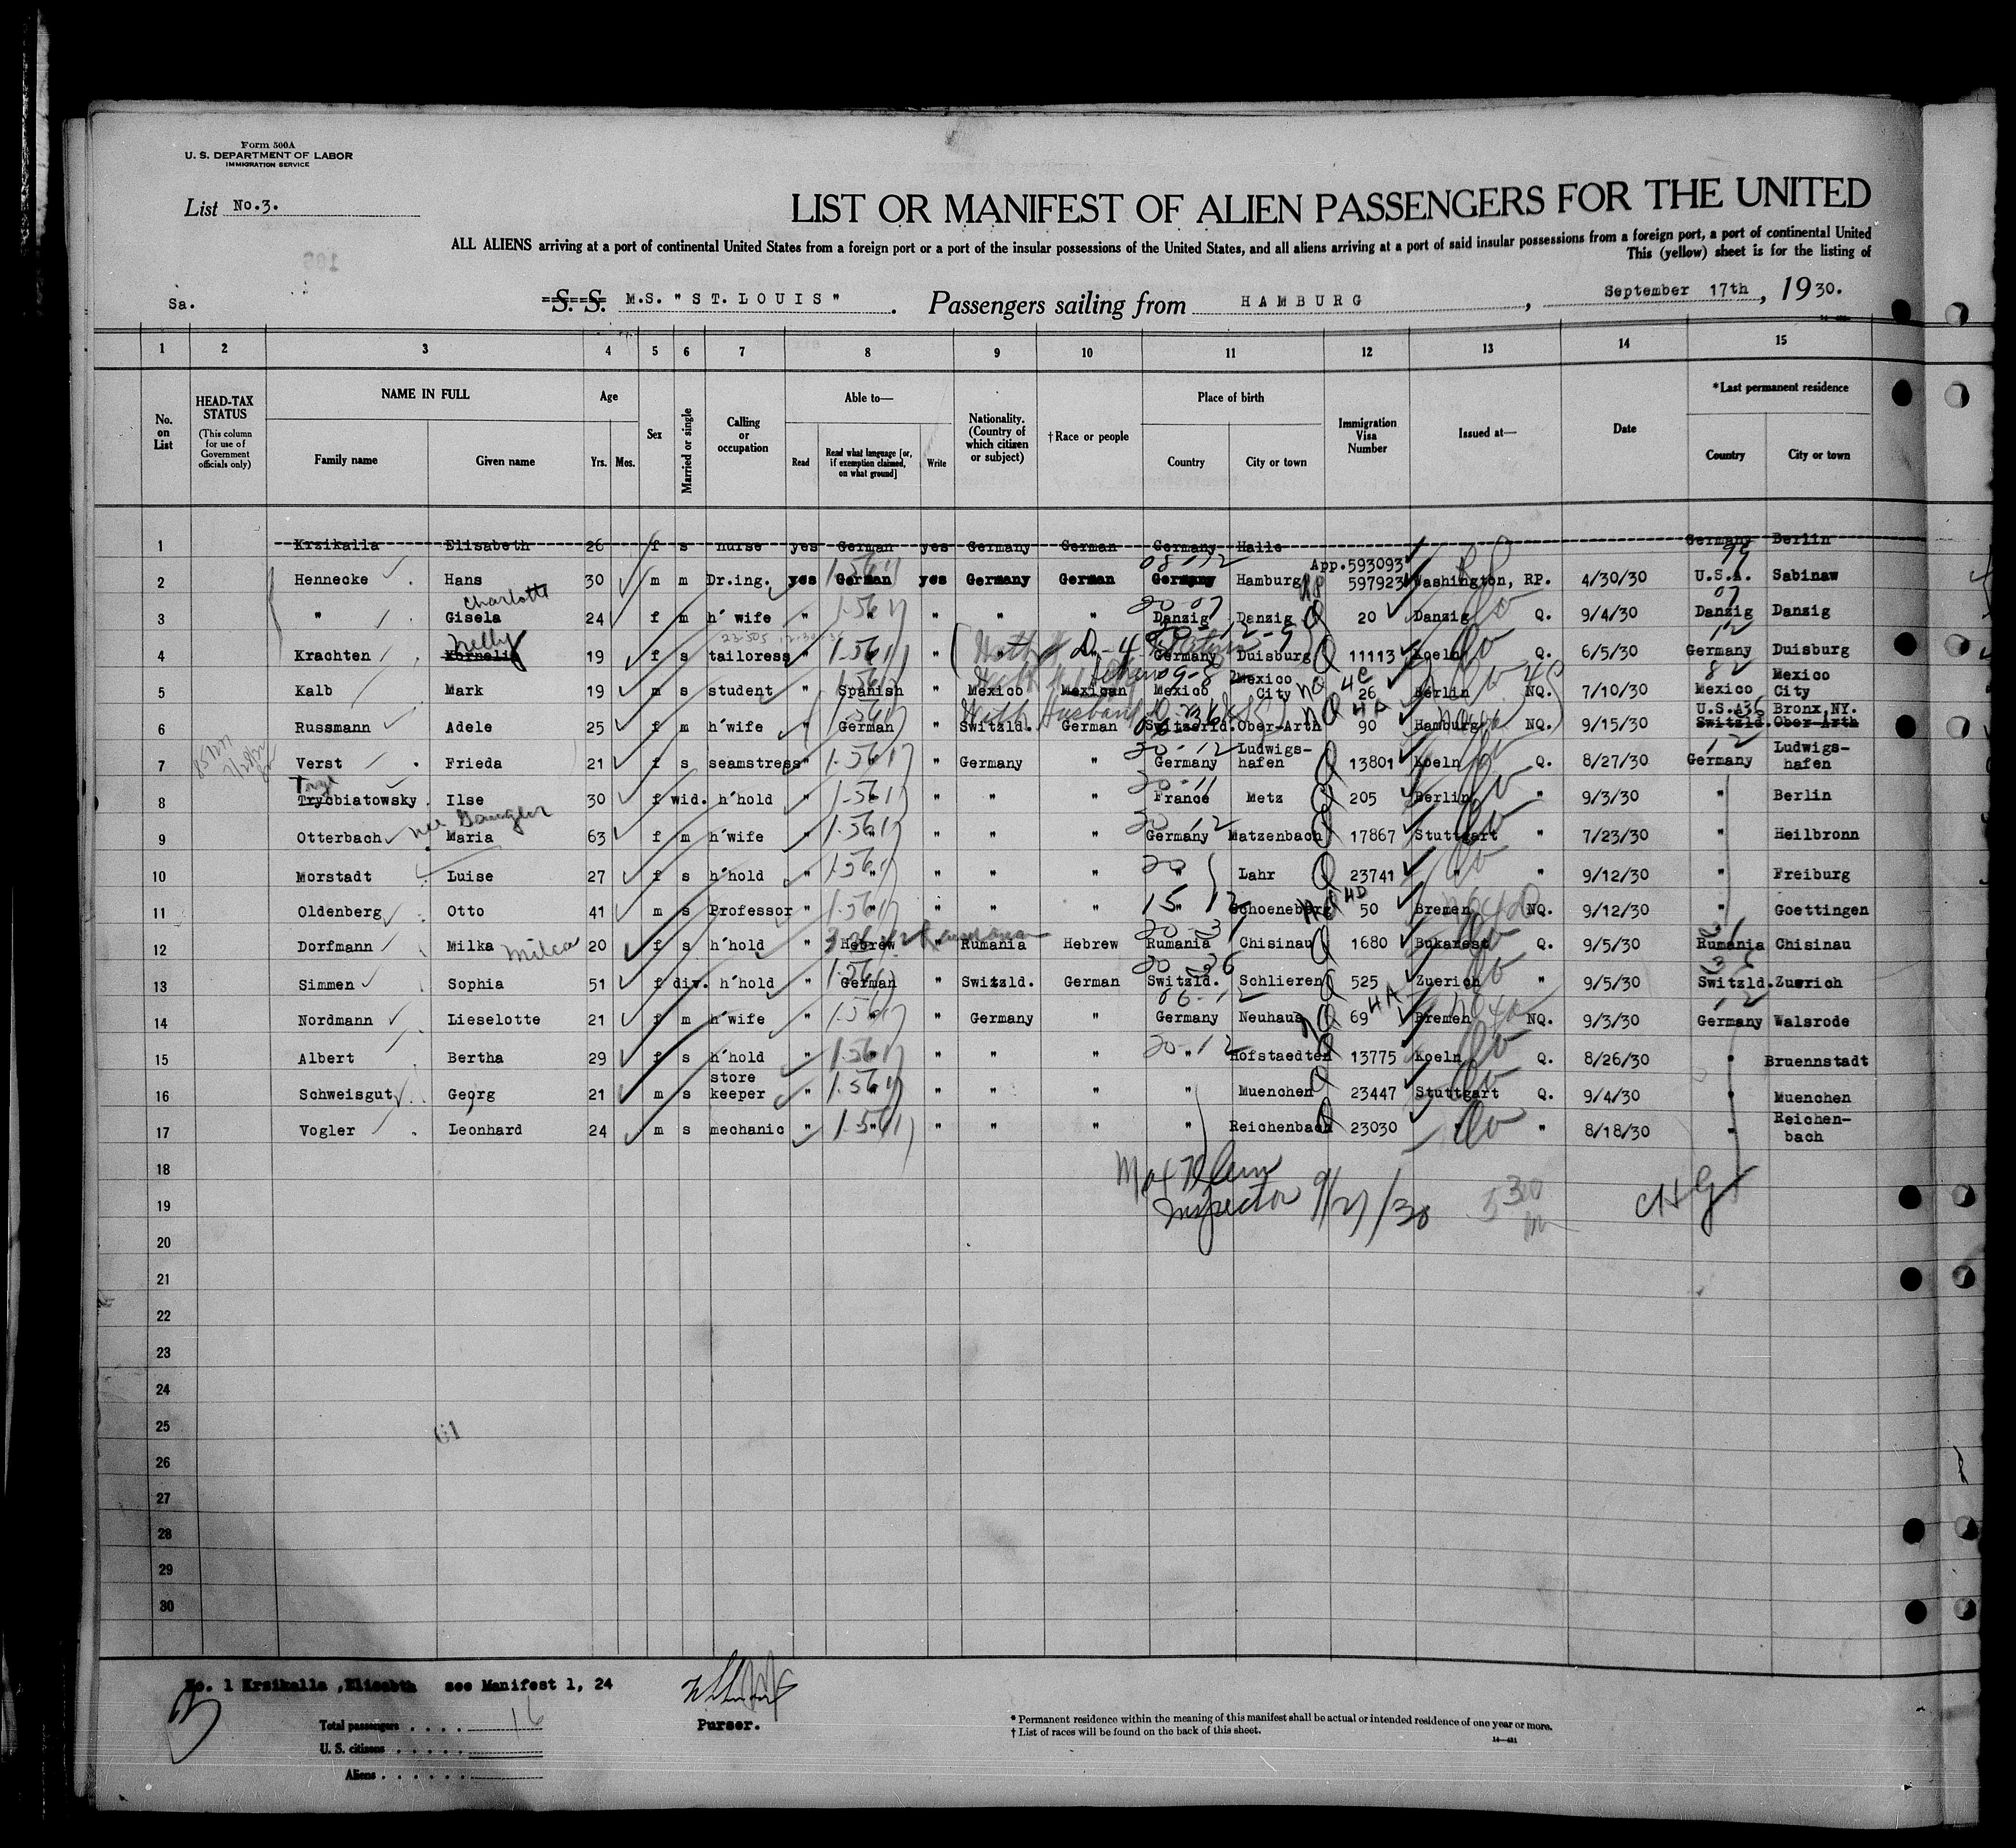 Form 500A
U. S. DEPARTMENT OF LABOR
IMMIGRATION SERVICE
List No.3.
LIST OR MANIFEST OF ALIEN PASSENGERS FOR THE UNITED
ALL ALIENS arriving at a port of continental United States from a foreign port or a port of the insular possessions of the United States, and all aliens arriving at a port of said insular possessions from a foreign port, a port of continental United
This (yellow) sheet is for the listing of
Sa. S. S. M.S. "ST.LOUIS". Passengers sailing from HAMBURG, September 17th, 1930.
1 2 3 4 5 6 7 8 9 10 11 12 13 14 15
No. on List
HEAD-TAX STATUS (This column for use of Government officials only)
NAME IN FULL Family name Given name
Age Yrs. Mos.
Sex
Married or single
Calling or occupation
Able to— Read Read what language [or, if exemption claimed, on what ground] Write
Nationality. (Country of which citizen or subject)
† Race or people
Place of birth Country City or town
Immigration Visa Number
Issued at—
Date
*Last permanent residence Country City or town
1 Krzikalla Elisabeth 26 f s nurse yes German yes Germany German Germany Halle Germany Berlin
2 Hennecke Hans 30 m m Dr.ing. yes German yes Germany German Germany Hamburg App.593093 597923 Washington, RP. 4/30/30 U.S.A. Sabinaw
3 " Gisela Charlotte 24 f m h'wife " " " " " Danzig Danzig 20 Danzig Q. 9/4/30 Danzig Danzig
4 Krachten Kornelia Nelly 19 f s tailoress " " " " " Germany Duisburg 11113 Koeln Q. 6/5/30 Germany Duisburg
5 Kalb Mark 19 m s student " Spanish " Mexico Mexican Mexico Mexico City 26 Berlin NQ. 7/10/30 Mexico Mexico City
6 Russmann Adele 25 f m h'wife " German " Switzld. German Switzerld. Ober-Arth 90 Hamburg NQ. 9/15/30 U.S.A. Bronx,NY. Switzld. Ober-Arth
7 Verst Frieda 21 f s seamstress " " " Germany " Germany Ludwigs-hafen 13801 Koeln Q. 8/27/30 Germany Ludwigs-hafen
8 Trycbiatowsky Ilse 30 f wid. h'hold " " " " " France Metz 205 Berlin " 9/3/30 " Berlin
9 Otterbach Maria 63 f m h'wife " " " " " Germany Matzenbach 17867 Stuttgart " 7/23/30 " Heilbronn
10 Morstadt Luise 27 f s h'hold " " " " " " Lahr 23741 " " 9/12/30 " Freiburg
11 Oldenberg Otto 41 m s Professor " " " " " " Schoeneberg 50 Bremen NQ. 9/12/30 " Goettingen
12 Dorfmann Milka Milca 20 f s h'hold " Hebrew " Rumania Hebrew Rumania Chisinau 1680 Bukarest Q. 9/5/30 Rumania Chisinau
13 Simmen Sophia 51 f div. h'hold " German " Switzld. German Switzld. Schlieren 525 Zuerich " 9/5/30 Switzld. Zuerich
14 Nordmann Lieselotte 21 f m h'wife " " " Germany " Germany Neuhaus 69 Bremen NQ. 9/3/30 Germany Walsrode
15 Albert Bertha 29 f s h'hold " " " " " " Hofstaedten 13775 Koeln Q. 8/26/30 " Bruennstadt
16 Schweisgut Georg 21 m s store keeper " " " " " " Muenchen 23447 Stuttgart Q. 9/4/30 " Muenchen
17 Vogler Leonhard 24 m s mechanic " " " " " " Reichenbach 23030 " " 8/18/30 " Reichen-bach
18
19 Inspector 9/27/30
20
21
22
23
24
25
26
27
28
29
30
No. 1 Krzikalla ,Elisabth see Manifest 1, 24
Total passengers . . . . 16
U. S. citizens . . . . .
Aliens . . . . . .
Purser.
* Permanent residence within the meaning of this manifest shall be actual or intended residence of one year or more.
† List of races will be found on the back of this sheet.